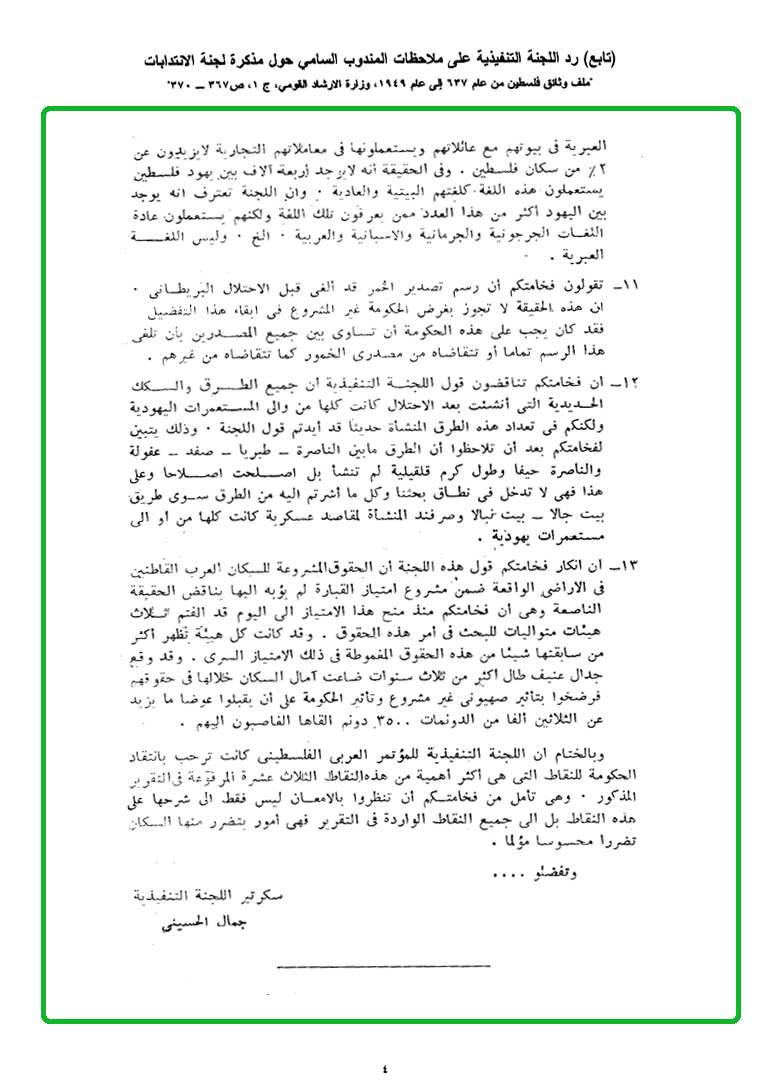 (تابع) رد اللجنة التنفيذية على ملاحظات المندوب السامي حول مذكرة لجنة الانتدابات
"ملف وثائق فلسطين من عام ٦٣٧ إلى عام ١٩٤٩، وزارة الارشاد القومي، ج ١، ص٣٦٧ – ٣٧٠"
العبرية في بيوتهم مع عائلاتهم ويستعملونها في معاملاتهم التجارية لايزيدون عن
٢٪ من سكان فلسطين . وفى الحقيقة أنه لايوجد أربعة آلاف بين يهود فلسطين
يستعملون هذه اللغة كلغتهم البيتية والعادية . وان اللجنة تعترف انه يوجد
بين اليهود أكثر من هذا العدد ممن يعرفون تلك اللغة ولكنهم يستعملون عادة
اللغات الجرجونية والجرمانية والاسبانية والعربية . الخ . وليس اللغة
العبرية .
١١ـ تقولون فخامتكم أن رسم تصدير الخمر قد ألغى قبل الاحتلال البريطانى .
ان هذه الحقيقة لا تجوز بغرض الحكومة غير المشروع فى ابقاء هذا التفضيل
فقد كان يجب على هذه الحكومة أن تساوى بين جميع المصدرين بأن تلغى
هذا الرسم تماما أو تتقاضاه من مصدرى الخمور كما تتقاضاه من غيرهم .
١٢ـ ان فخامتكم تناقضون قول اللجنة التنفيذية أن جميع الطرق والسكك
الحديدية التى أنشئت بعد الاحتلال كانت كلها من والى المستعمرات اليهودية
ولكنكم فى تعداد هذه الطرق المنشأة حديثا قد أيدتم قول اللجنة . وذلك يتبين
لفخامتكم بعد أن تلاحظوا أن الطرق مابين الناصرة ـ طبريا ـ صفد ـ عفولة
والناصرة حيفا وطول كرم قلقيلية لم تنشأ بل اصلحت اصلاحا وعلى
هذا فهى لا تدخل فى نطاق بحثنا وكل ما أشرتم اليه من الطرق سوى طريق
بيت جالا ـ بيت نبالا وصرفند المنشأة لمقاصد عسكرية كانت كلها من أو الى
مستعمرات يهودية .
١٣ـ ان انكار فخامتكم قول هذه اللجنة أن الحقوق المشروعة للسكان العرب القاطنين
فى الاراضى الواقعة ضمن مشروع امتياز القبارة لم يؤبه اليها يناقض الحقيقة
الناصعة وهى أن فخامتكم منذ منح هذا الامتياز الى اليوم قد الفتم ثلاث
هيئات متواليات للبحث فى أمر هذه الحقوق . وقد كانت كل هيئة تظهر أكثر
من سابقتها شيئا من هذه الحقوق المغموطة فى ذلك الامتياز السرى . وقد وقع
جدال عنيف طال أكثر من ثلاث سنوات ضاعت آمال السكان خلالها فى حقوقهم
فرضخوا بتأثير صهيونى غير مشروع وتأثير الحكومة على أن يقبلوا عوضا ما يزيد
عن الثلاثين ألفا من الدونمات ٣٥٠٠ دونم القاها الغاصبون اليهم .
وبالختام ان اللجنة التنفيذية للمؤتمر العربى الفلسطينى كانت ترحب بانتقاد
الحكومة للنقاط التى هى أكثر أهمية من هذه النقاط الثلاث عشرة المرفوعة فى التقرير
المذكور . وهى تأمل من فخامتكم أن تنظروا بالامعان ليس فقط الى شرحها على
هذه النقاط بل الى جميع النقاط الواردة فى التقرير فهى أمور يتضرر منها السكان
تضررا محسوسا مؤلما .
وتفضلو ....
سكرتير اللجنة التنفيذية
جمال الحسينى
٤